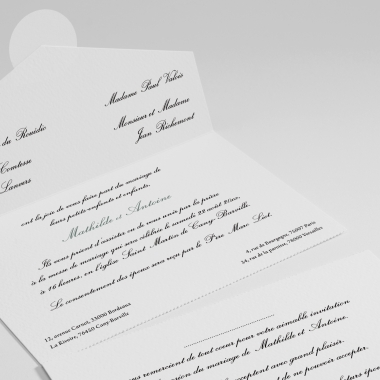 du Rouidic
Comtesse
Lanvers
Madame Paul Valois
Monsieur et Madame
Jean Richemont
ont la joie de vous faire part du mariage de
leurs petits enfants et enfants.
Mathilde et Antoine
Ils vous prient d'assister ou de vous unir par la prière
à la messe de mariage qui sera célébrée le samedi 22 août
à 16 heures, en l'église Saint Martin de Cany-Barville.
Le consentement des époux sera reçu par le Père Marc
12, avenue Carnot, 33000 Bordeaux
La Rivière, 76450 Cany-Barville
4, rue de Bourgogne, 75007 Paris
14, rue de la paroisse, 78000 Versailles
vous remercient de tout cœur pour votre aimable invitation
du mariage de Mathilde et Antoine.
acceptent avec grand plaisir.
de ne pouvoir accepter.